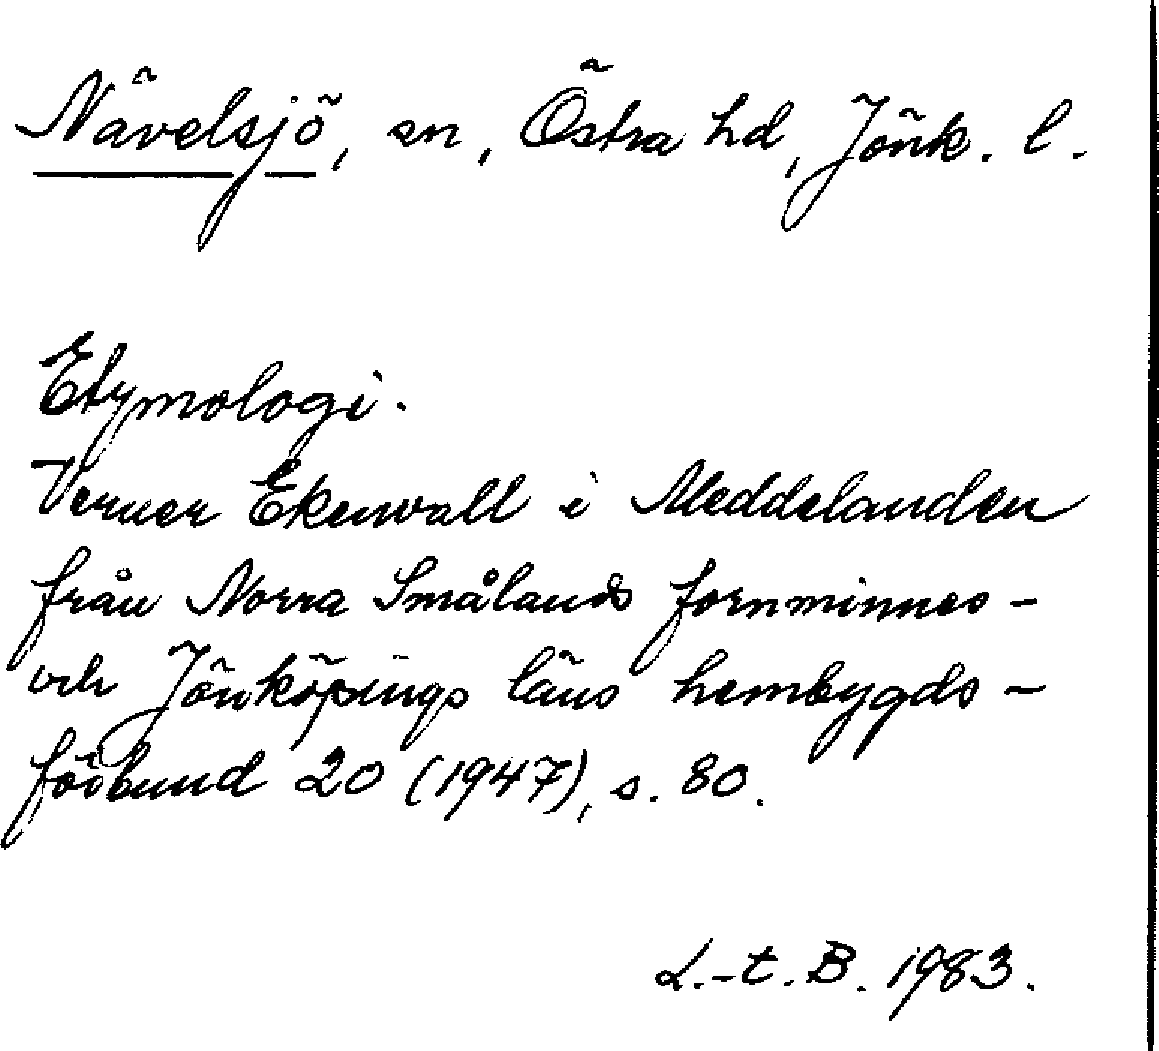 Nävelsjö, sn, Östra hd, Jönk. l.
Etymologi.
Verner Ekenvall i Meddelanden
från Norra Smålands fornminnes-
och Jönköpings läns hembygds-
förbund 20 (1947), s. 80.
L.-t. B. 1983.